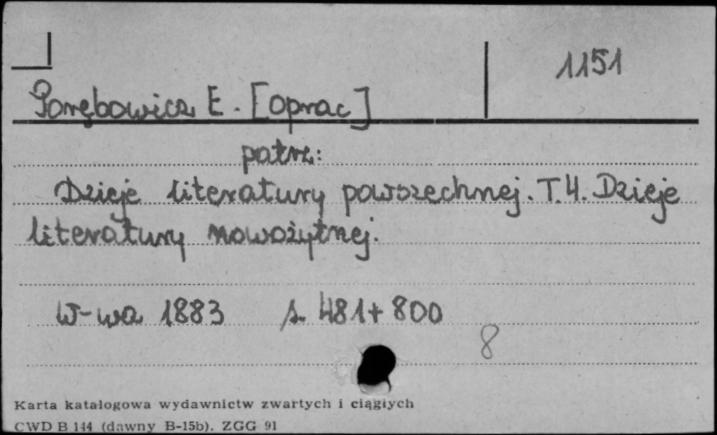 1151
Porębowicz E. [oprac]
patrz:
Dzieje literatury powszechnej. T. 4. Dzieje
literatury nowożytnej.
W-wa 1883 s. 481 + 800
8
Karta katalogowa wydawnictw zwartych i ciągłych
CWD B 144 (dawny B-15b). ZGG 91